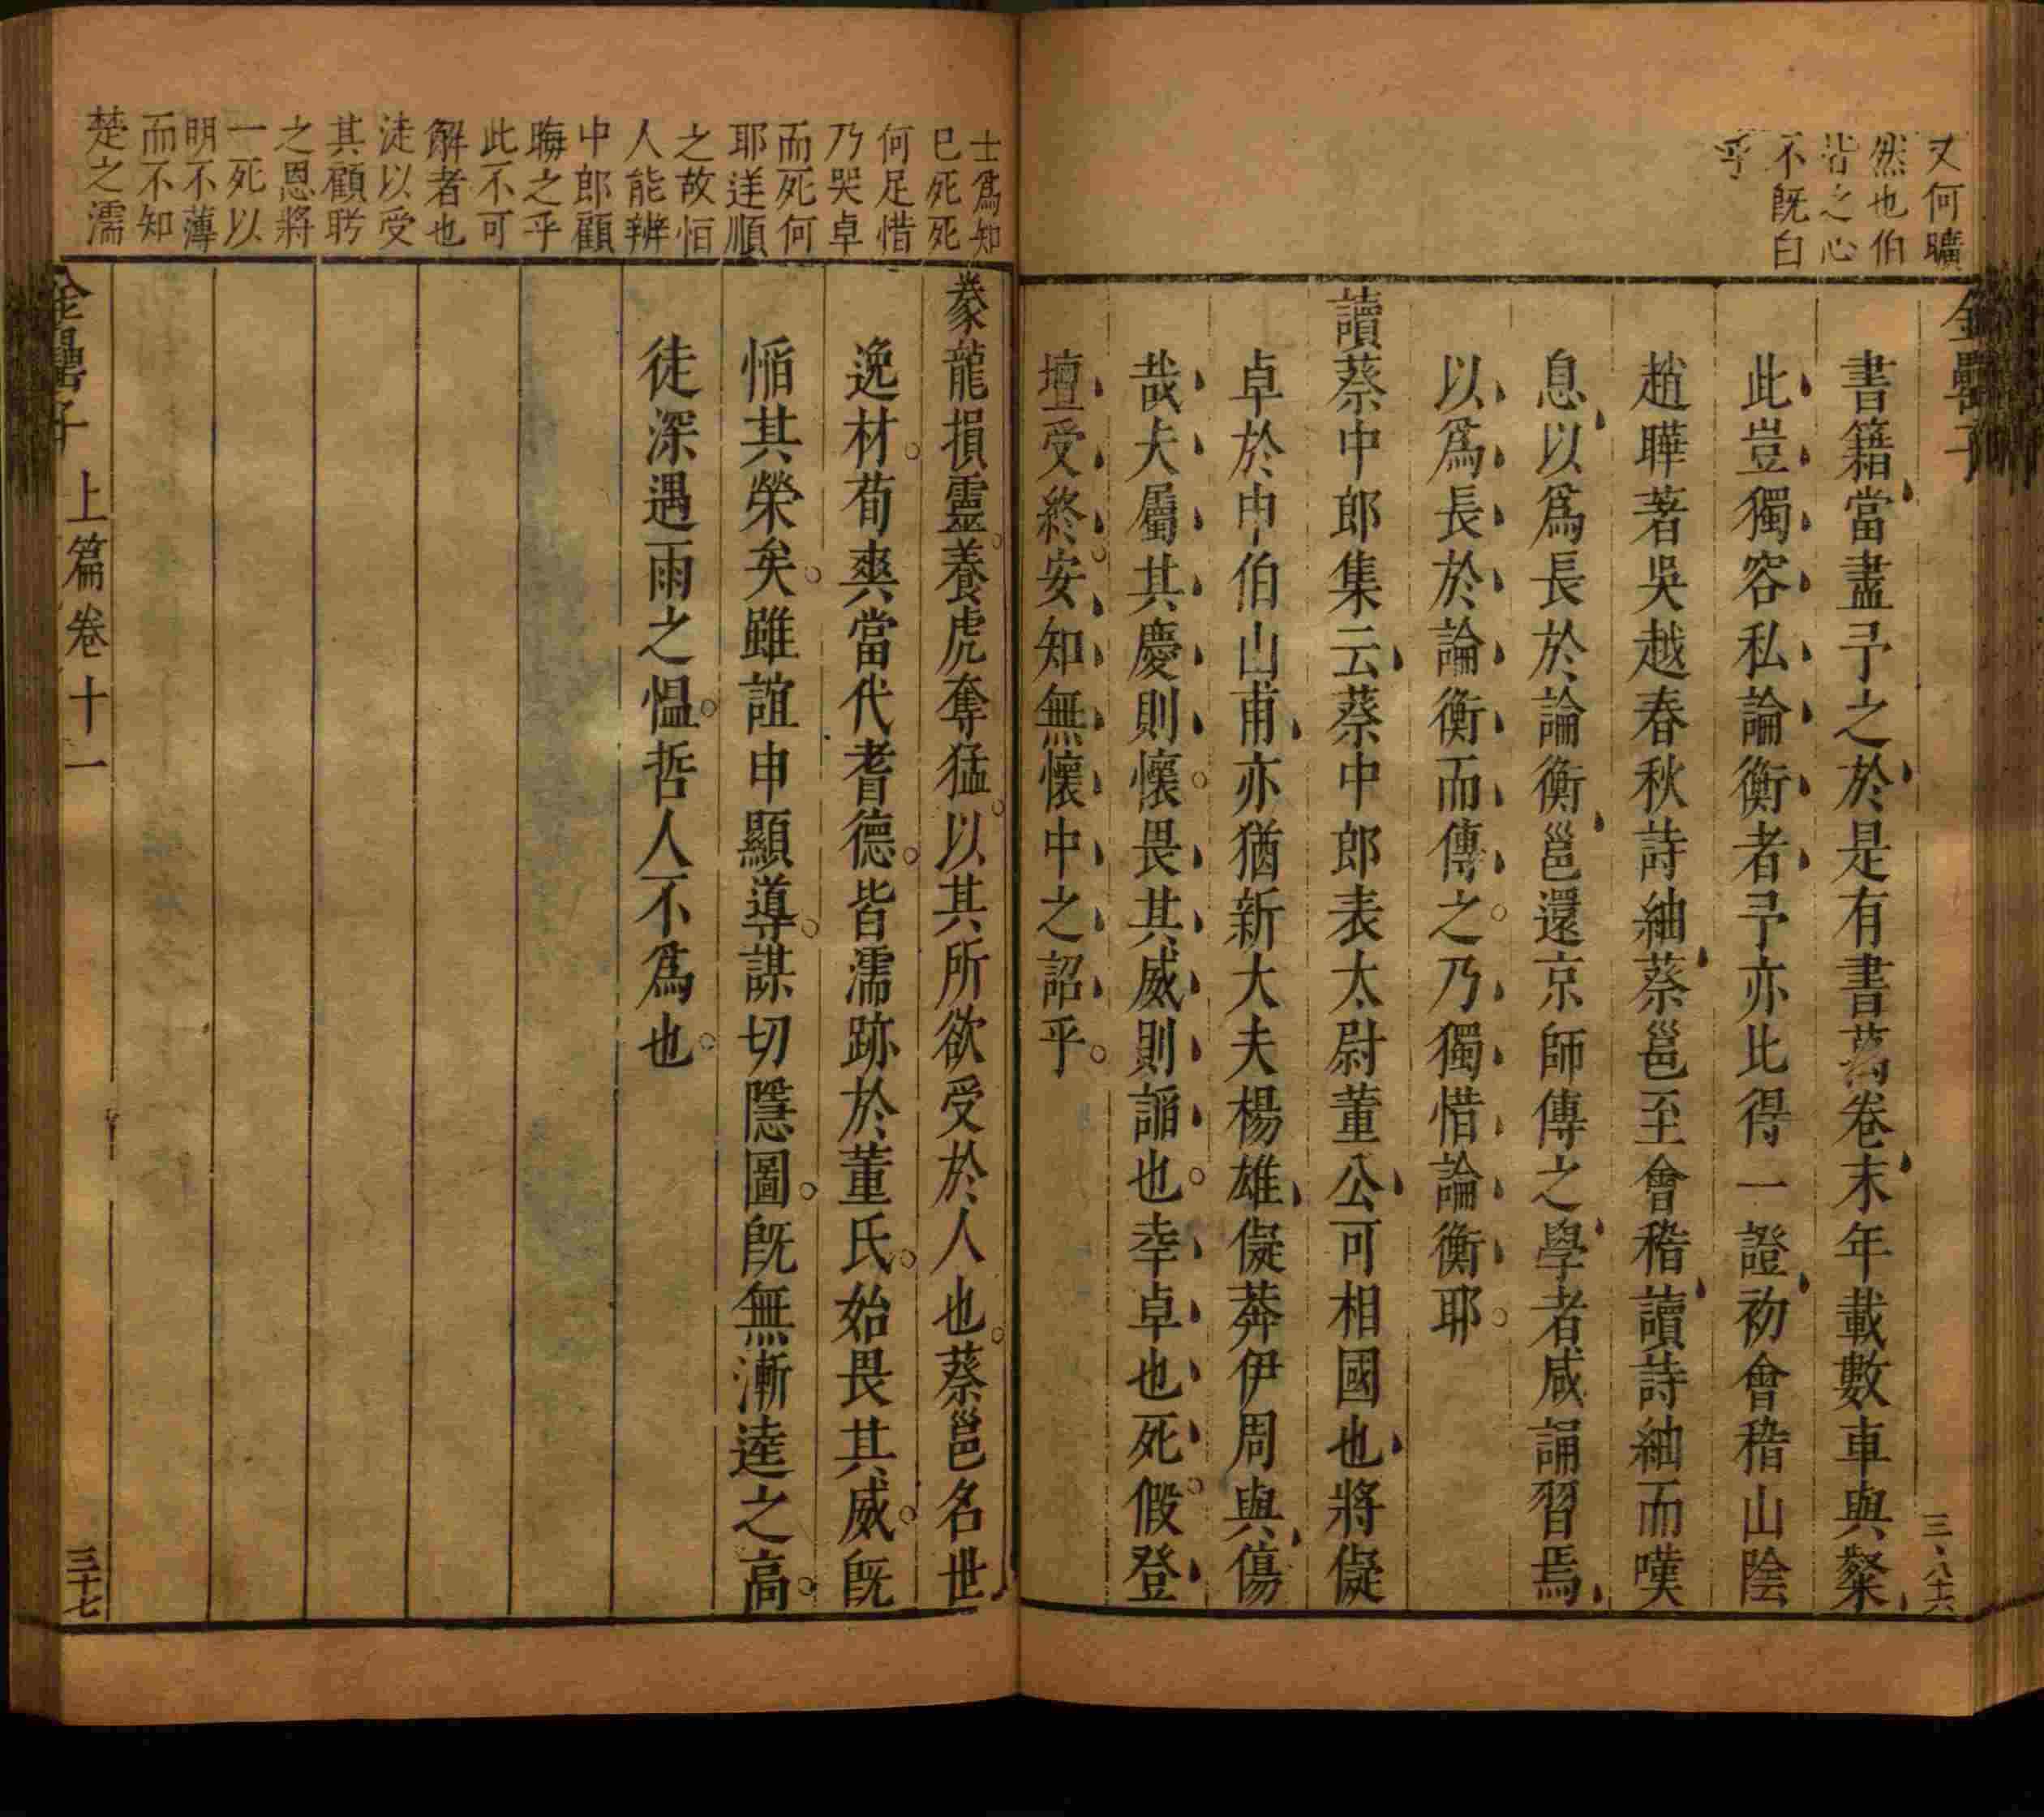 又何曠
然也伯
喈之心
不旣白
乎
書籍當盡予之於是有書萬卷末年載數車與粲
此豈獨容私論衡者予亦比得一證初會稽山陰
趙曄著吳越春秋詩紬蔡邕至會稽讀詩紬而嘆
息以爲長於論衡邕還京師傳之學者咸誦習焉
以爲長於論衡而傳之乃獨惜論衡耶
讀蔡中郎集云蔡中郎表太尉董公可相國也將儗
卓於申伯山甫亦猶新大夫楊雄儗莽伊周與傷
哉夫屬其慶則懷畏其威則謟也幸卓也死假登
壇受終安知無懷中之詔乎
三八十六
士爲知
巳死死
何足惜
乃哭卓
而死何
耶逆順
之故恒
人能辨
中郎顧
晦之乎
此不可
解者也
徒以受
其顧盻
之恩將
一死以
明不薄
而不知
楚之濡
豢龍損靈養虎奪猛以其所欲受於人也蔡邕名世
逸材荀爽當代耆德皆濡跡於董氏始畏其威旣
慆其榮矣雖誼申顯導謀切隱圖旣無漸逵之高
徒深遇雨之慍哲人不爲也
金罍子 上篇卷十一 三十七